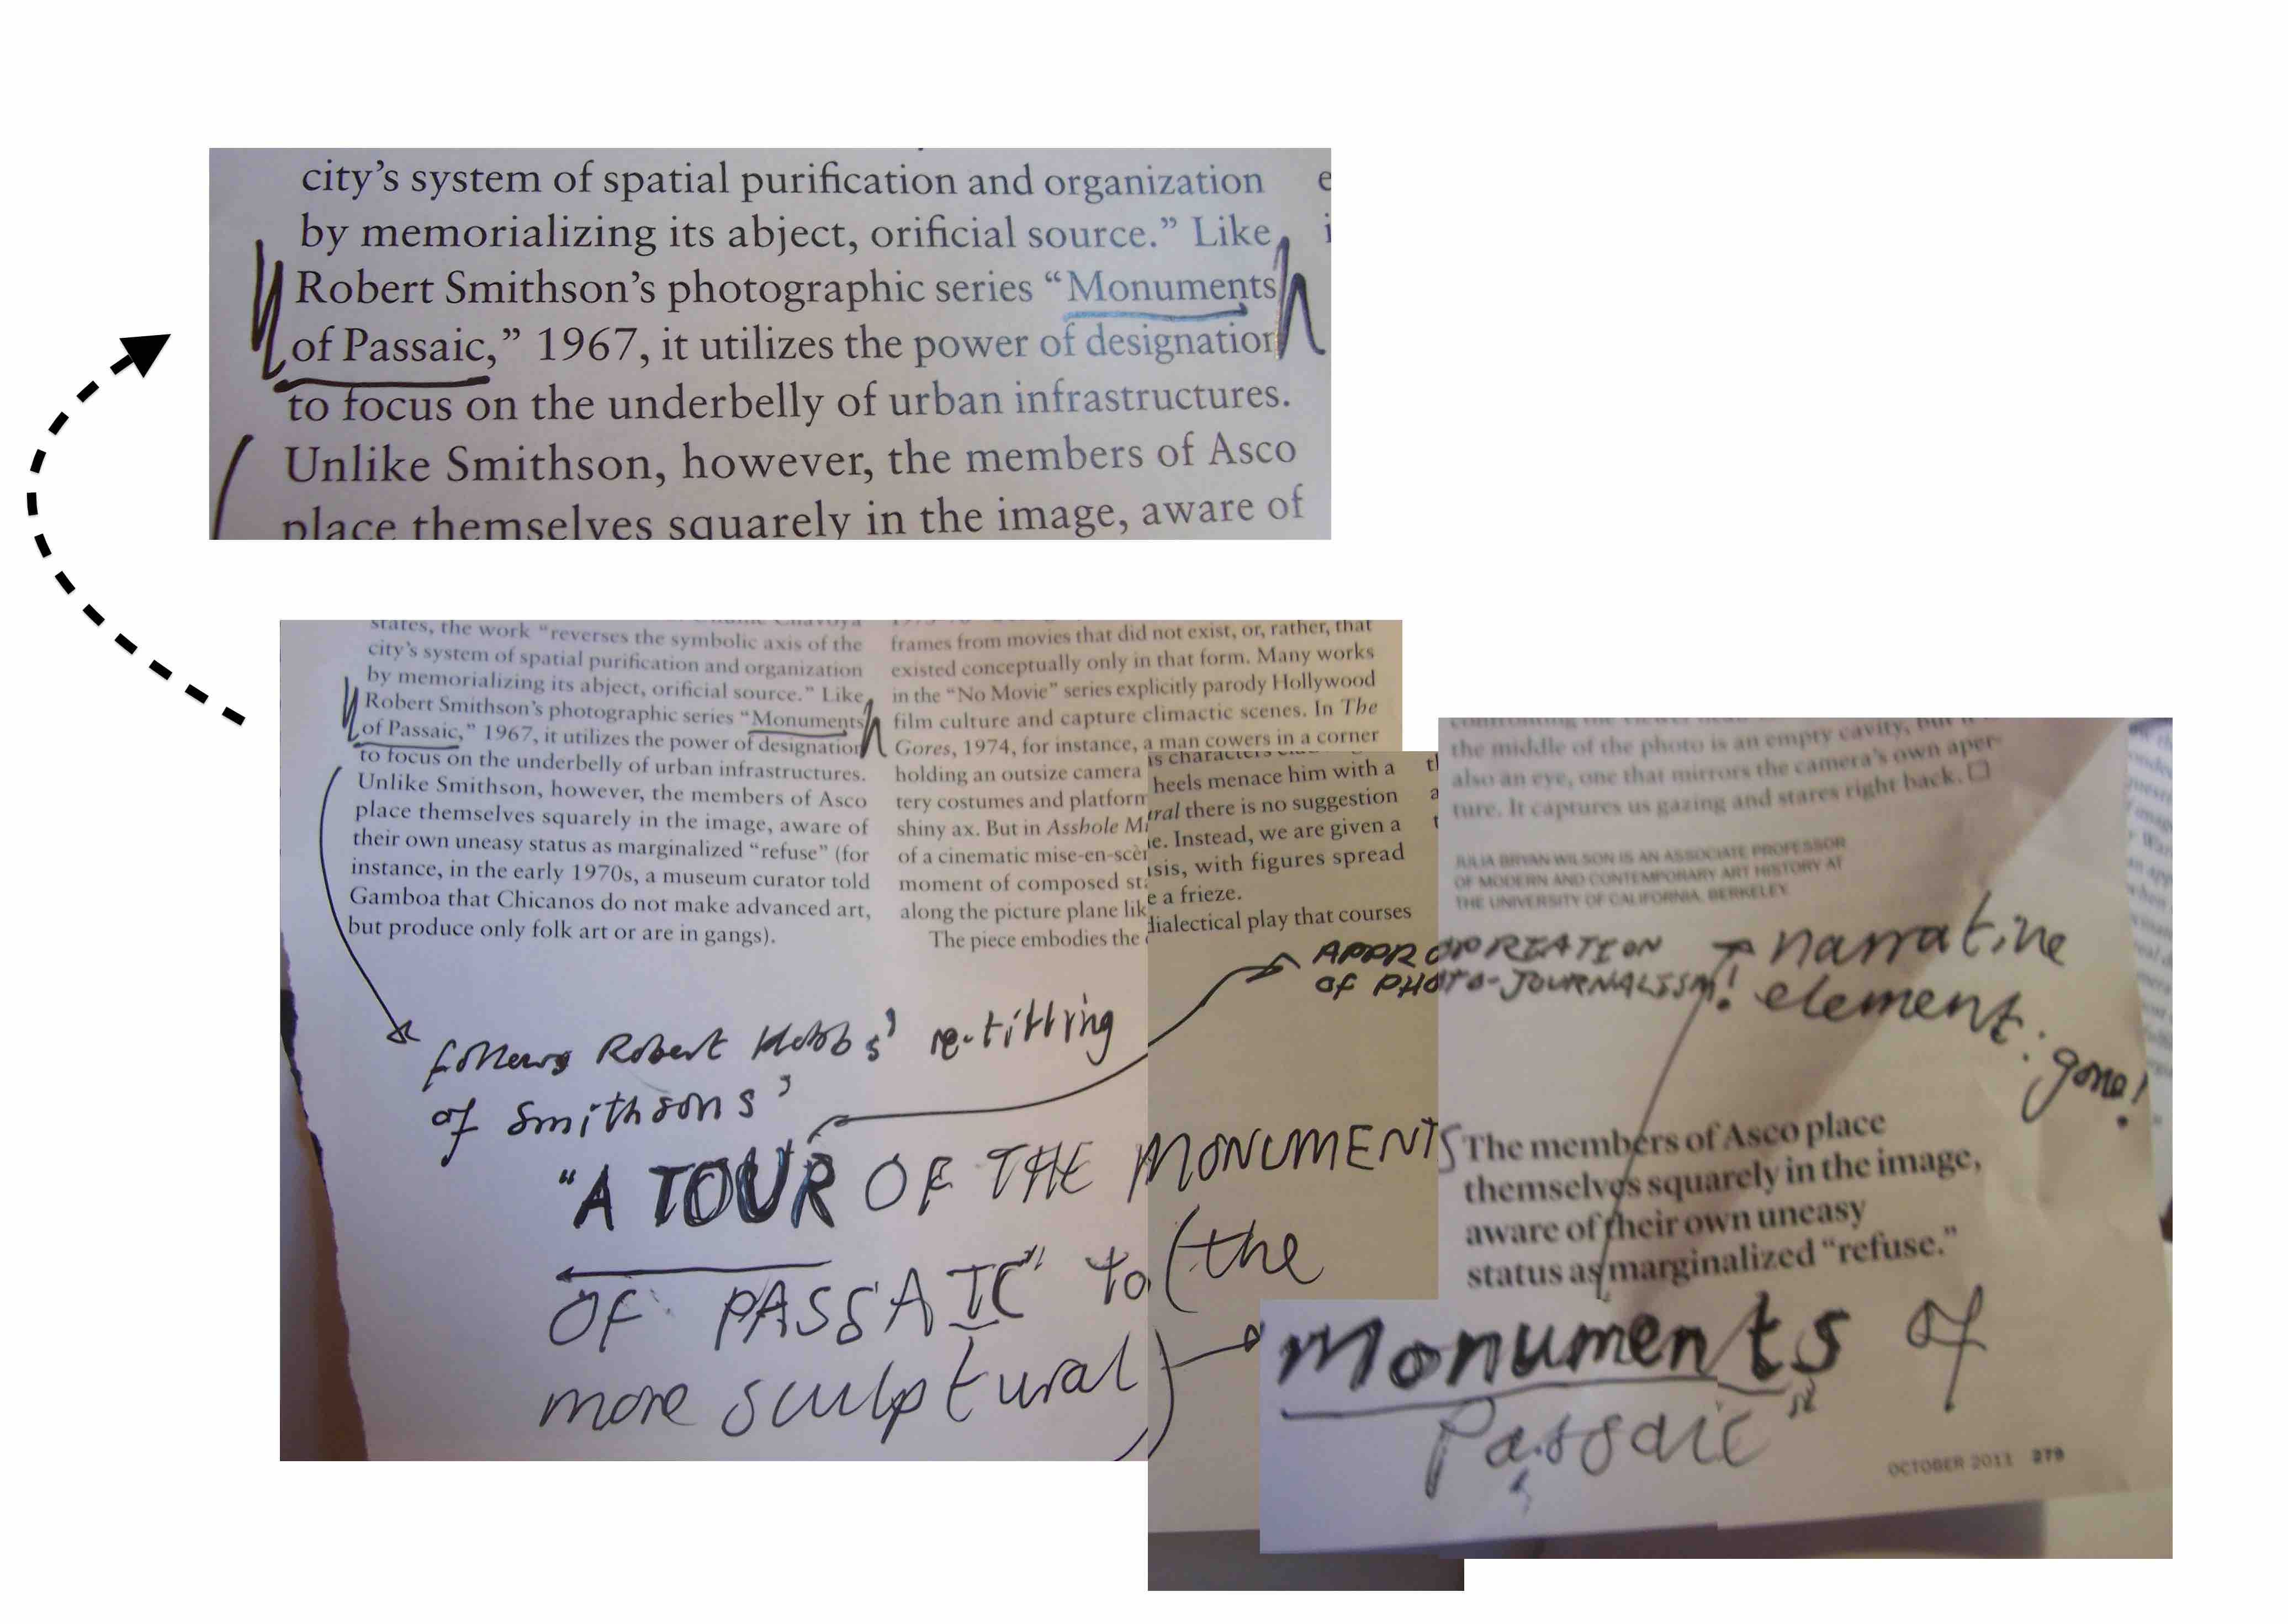 city's system of spatial purification and organization
by memorializing its abject, orificial source." Like
Robert Smithson's photographic series "Monuments
of Passaic," 1967, it utilizes the power of designation
to focus on the underbelly of urban infrastructures.
Unlike Smithson, however, the members of Asco
place themselves squarely in the image, aware of
states, the work "reverses the symbolic axis of the
city's system of spatial purification and organization
by memorializing its abject, orificial source." Like
Robert Smithson's photographic series "Monuments
of Passaic," 1967, it utilizes the power of designation
to focus on the underbelly of urban infrastructures.
Unlike Smithson, however, the members of Asco
place themselves squarely in the image, aware of
their own uneasy status as marginalized "refuse" (for
instance, in the early 1970s, a museum curator told
Gamboa that Chicanos do not make advanced art,
but produce only folk art or are in gangs).
frames from movies that did not exist, or, rather, that
existed conceptually only in that form. Many works
in the "No Movie" series explicitly parody Hollywood
film culture and capture climactic scenes. In The
Gores, 1974, for instance, a man cowers in a corner
holding an outsize camera
tery costumes and platform heels menace him with a
shiny ax. But in Asshole Mural there is no suggestion
of a cinematic mise-en-scène. Instead, we are given a
moment of composed stasis, with figures spread
along the picture plane like a frieze.
The piece embodies the dialectical play that courses
the middle of the photo is an empty cavity, but
also an eye, one that mirrors the camera's own aper-
ture. It captures us gazing and stares right back.
JULIA BRYAN-WILSON IS AN ASSOCIATE PROFESSOR
OF MODERN AND CONTEMPORARY ART HISTORY AT
THE UNIVERSITY OF CALIFORNIA, BERKELEY.
APPROPRIATION
of PHOTO-JOURNALISM!
narrative
element: gone!
follows Robert Hobbs' re-titling
of Smithsons'
"A TOUR OF THE MONUMENTS
OF PASSAIC" to (the
more sculptural)
"Monuments of
Passaic"
The members of Asco place
themselves squarely in the image,
aware of their own uneasy
status as marginalized "refuse."
OCTOBER 2011 279